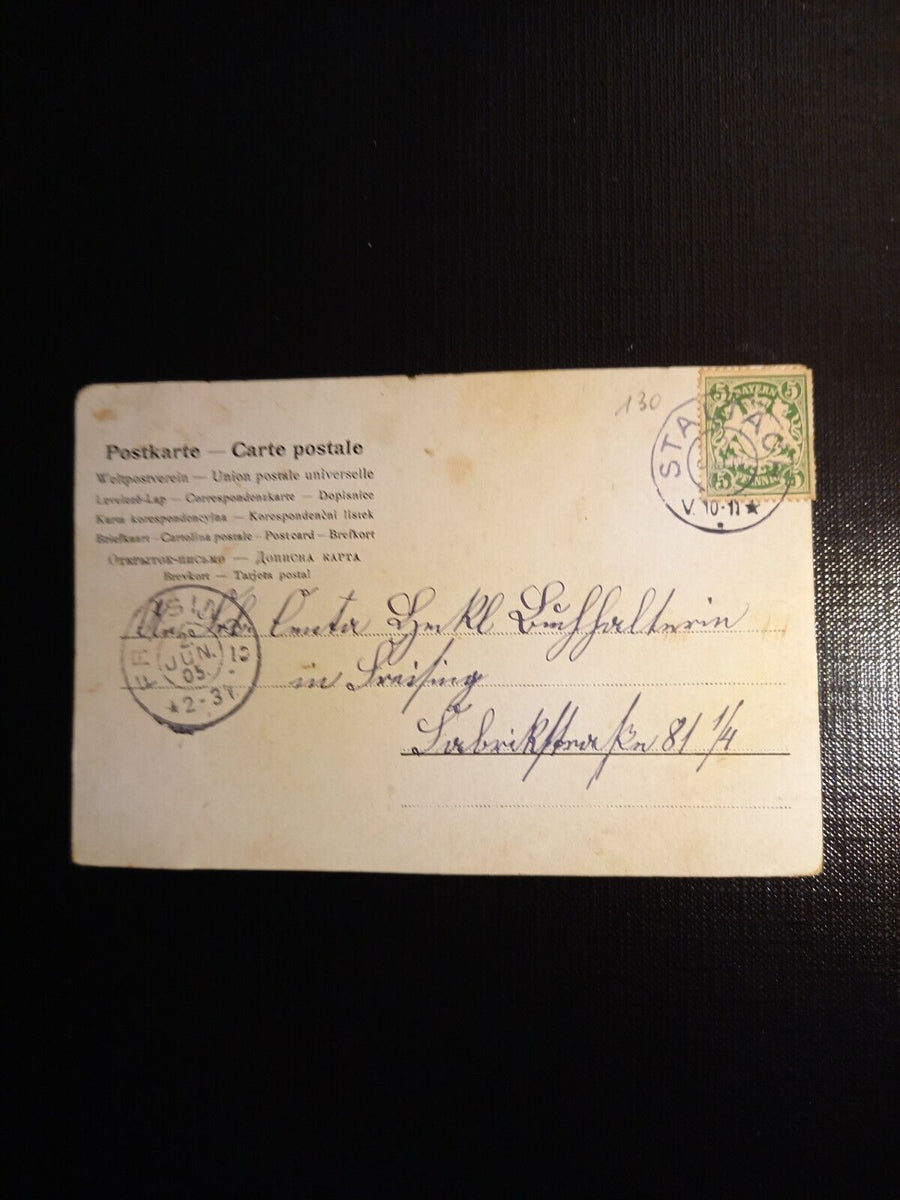 130
5 BAYERN 5
5 PFENNIG 5
STA
V. 10-11 ★
Postkarte — Carte postale
Weltpostverein — Union postale universelle
Levelező-Lap — Correspondenzkarte — Dopisnice
Karta korespondencyjna — Korespondenční lístek
Briefkaart — Cartolina postale — Postcard — Brefkort
Открытое письмо — Дописна карта
Brevkort — Tarjeta postal
Centa Buchhalterin
in Freising
Fabrikstraße 81 1/4
JUN.
05.
★ 2-3